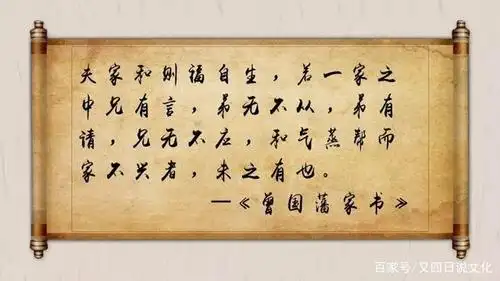 夫家和则福自生，若一家之
中兄有言，弟无不从，弟有
请，兄无不应，和气蒸帮而
家不兴者，未之有也。
—《曾国藩家书》
百家号/又四日说文化